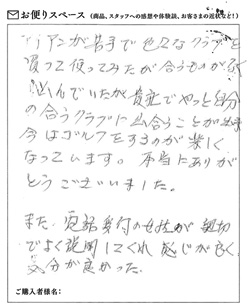 お便りスペース（商品、スタッフへの感想や体験談、お客さまの近状など！）
アイアンが苦手で色々なクラブを
買って使ってみたが合うものがなく
悩んでいたが貴社でやっと自分
の合うクラブに出合うことが出来
今はゴルフをするのが楽しく
なっています。本当にありが
とうございました。
また、電話受付の女性が親切
でよく説明してくれ感じが良く
気分が良かった。
ご購入者様名：